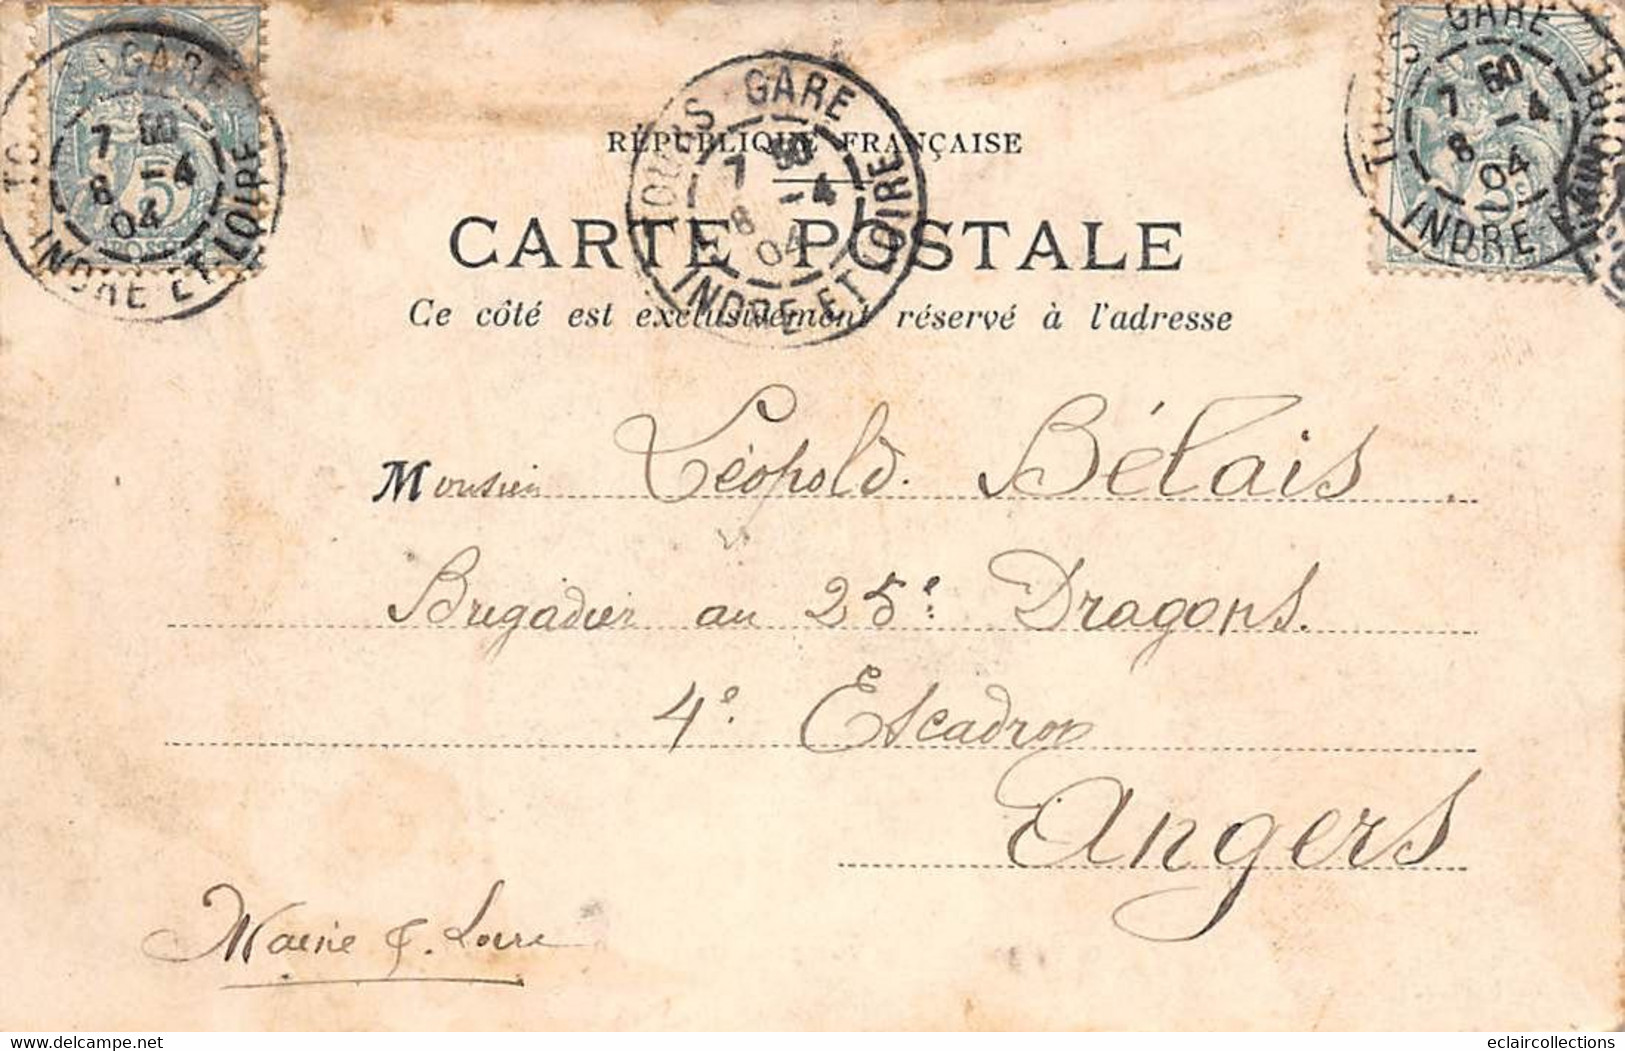 TOURS-GARE
7 50
8 -4
04
INDRE ET LOIRE
RÉPUBLIQUE FRANÇAISE
CARTE POSTALE
Ce côté est exclusivement réservé à l'adresse
TOURS GARE
7 50
8 -4
04
INDRE ET LOIRE
Monsieur Léopold Bélais
Brigadier au 25e Dragons.
4e Escadron
Angers
Maine & Loire
eclaircollections